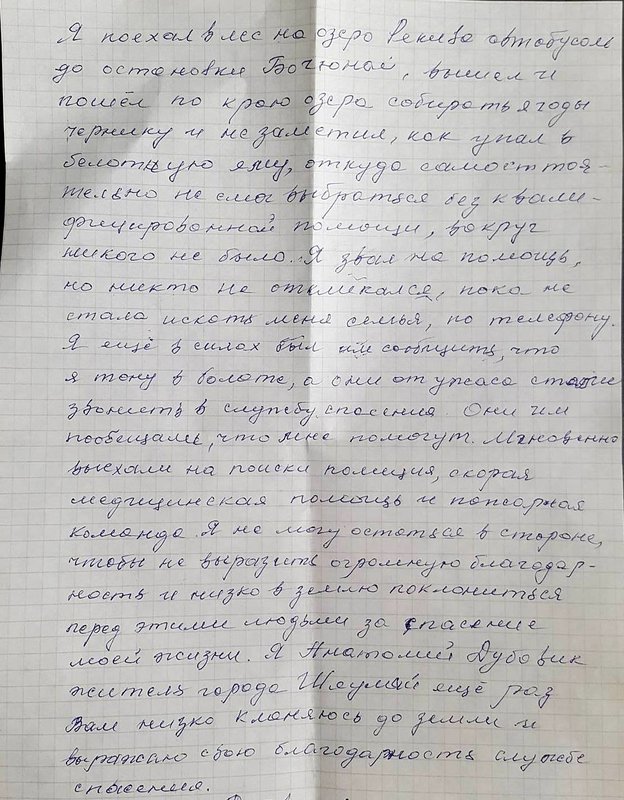 Я поехал в лес на озеро Рекива автобусом
до остановки Бачюнай, вышел и
пошёл по краю озера собирать ягоды
чернику и не заметил, как упал в
болотную яму, откуда самостоя-
тельно не смог выбраться без квали-
фицированной помощи, вокруг
никого не было. Я звал на помощь,
но никто не откликался, пока не
стала искать меня семья, по телефону.
Я ещё в силах был им сообщить, что
я тону в болоте, а они от ужаса стали
звонить в службу спасения. Они им
пообещали, что мне помогут. Мгновенно
выехали на поиски полиция, скорая
медицинская помощь и пожарная
команда. Я не могу остаться в стороне,
чтобы не выразить огромную благодар-
ность и низко в землю поклониться
перед этими людьми за спасение
моей жизни. Я Анатолий Дубовик
житель города Шяуляй ещё раз
Вам низко кланяюсь до земли и
выражаю свою благодарность службе
спасения.